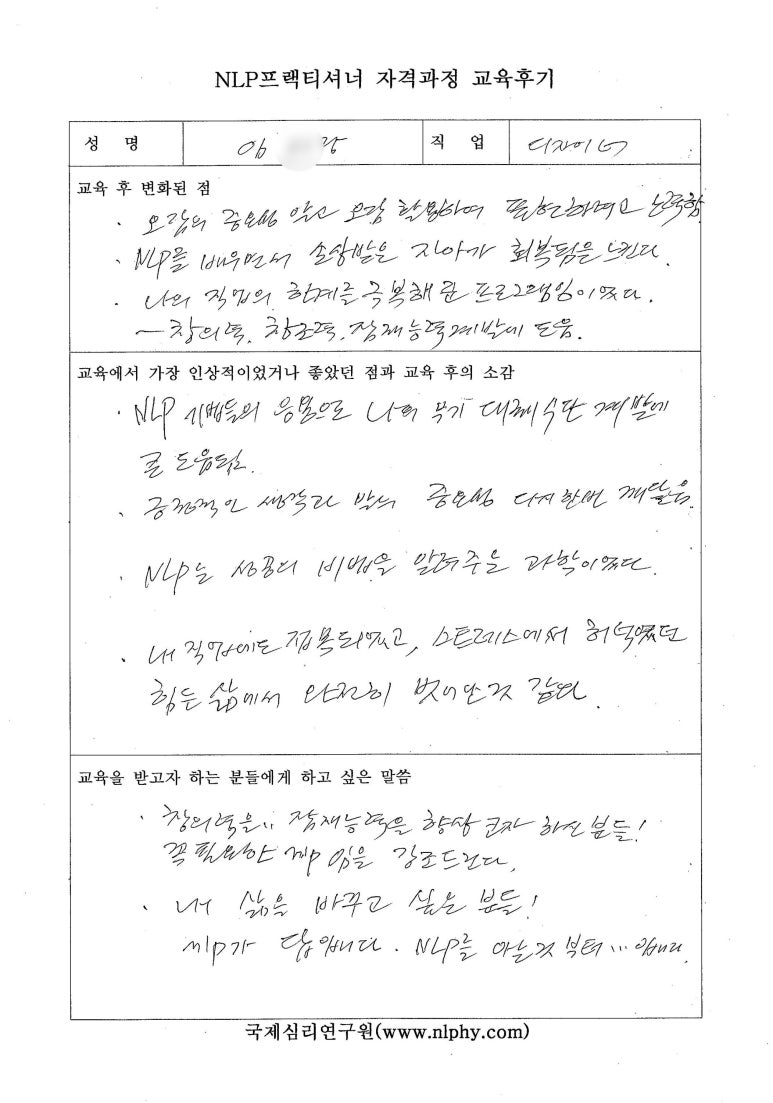 NLP프랙티셔너 자격과정 교육후기
성 명 직 업 디자이너
교육 후 변화된 점
· 오감의 중요성 알고 오감 활용하여 표현하려고 노력함
· NLP를 배우면서 손상받은 자아가 회복됨을 느낀다.
· 나의 직업의 한계를 극복해 준 프로그램이었다.
- 창의력, 창조력, 잠재능력계발에 도움.
교육에서 가장 인상적이었거나 좋았던 점과 교육 후의 소감
· NLP 기법들의 응용으로 나의 무기 대체수단 계발에
큰 도움됨.
· 긍정적인 생각과 말의 중요성 다시 한번 깨달음.
· NLP는 성공의 비법을 알려주는 과학이었다.
· 내 직업에도 접목되었고, 스트레스에서 허덕였던
힘든 삶에서 완전히 벗어난것 같다.
교육을 받고자 하는 분들에게 하고 싶은 말씀
· 창의력을.. 잠재능력을 향상 코자 하신 분들!
꼭 필요한 NLP 임을 강조드린다.
· 내 삶을 바꾸고 싶은 분들!
NLP가 답입니다. NLP를 아는것 부터... 입니다.
국제심리연구원(www.nlphy.com)